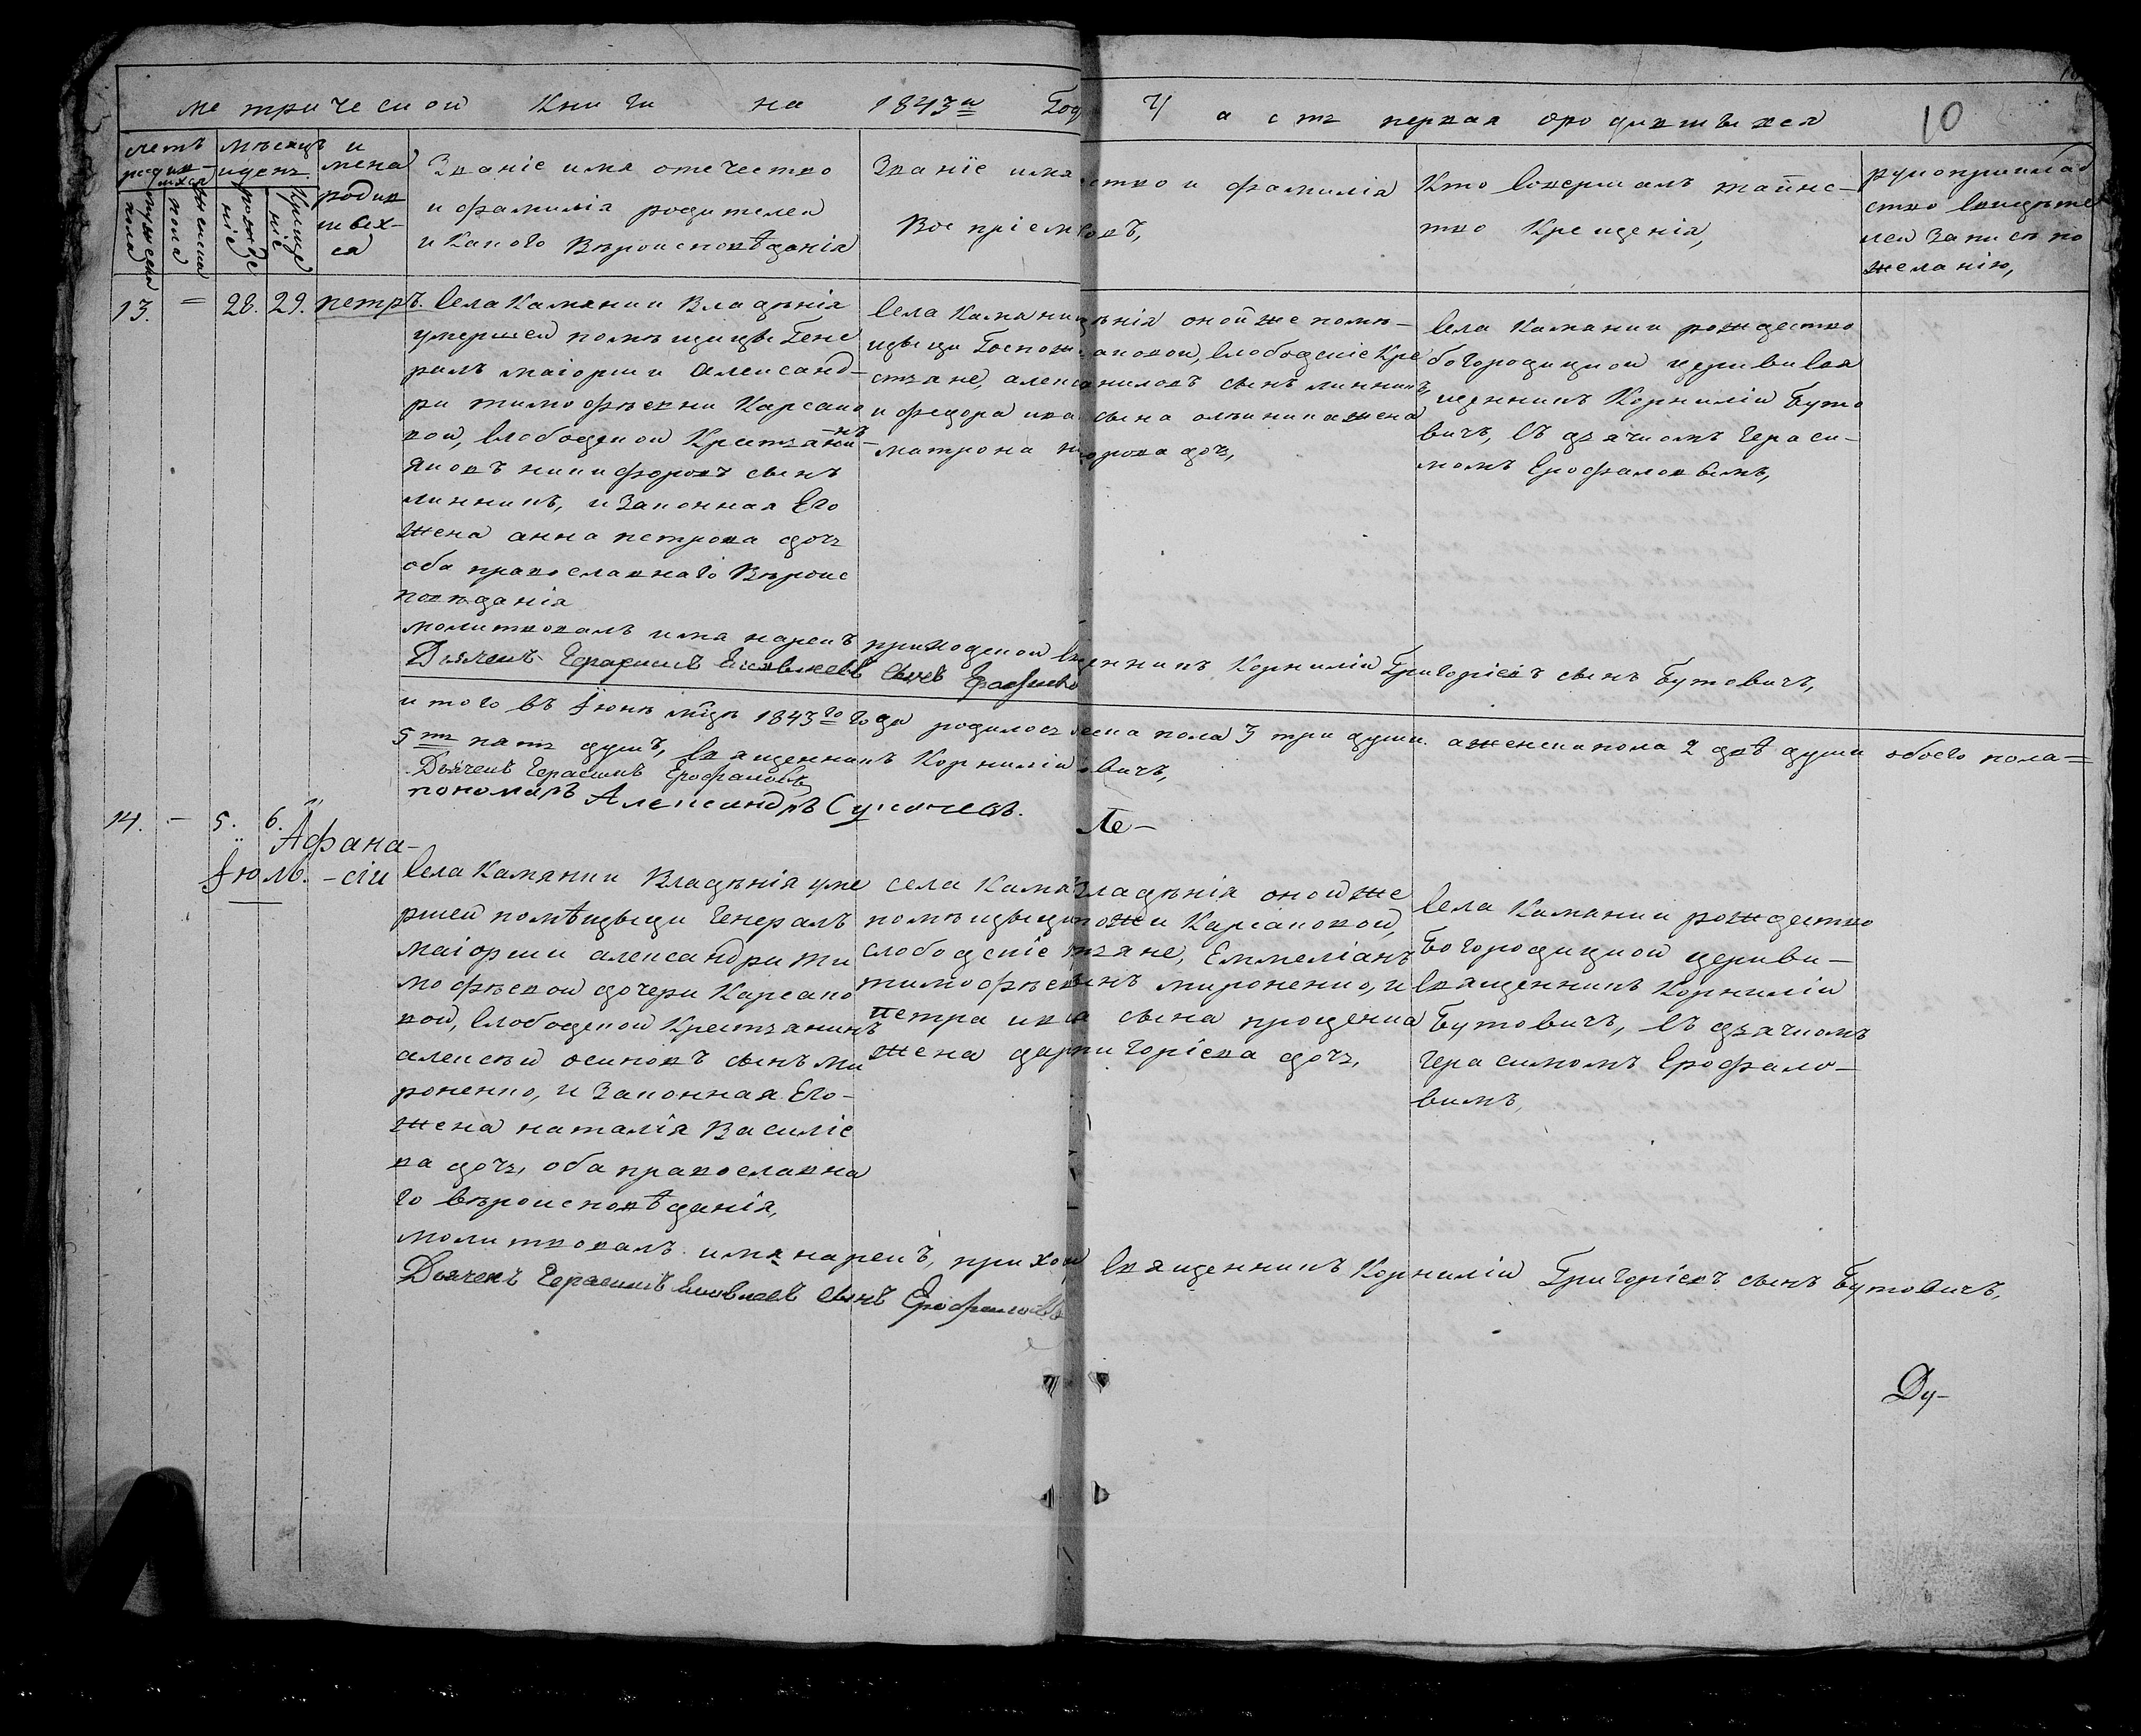 метрической книги на 1843й Год
Часть первая о родившыхся
10
летъ родившихся
мужеска пола
женска пола
мѣсяцъ и день
рожденіе
крещеніе
имена родившыхся
Званіе имя отечество
и фамилія родителей
и Какого Вѣроисповѣданія
Званіе имя
ство и фамилія
Воспріемковъ,
Кто Совершалъ таинс-
тво Крещенія,
рукоприклад
ство свидѣте
лей записѣ по
желанію,
13. = 28. 29. петръ.
Села Камянки Владѣнія
умершей помѣщицѣ Гене
ралъ маіорши Александ-
ри тимофѣевни Карсако
вой, Слободской Крестянинъ
яковъ никифоровъ сынъ
линникъ, и Законная Его
Жена анна петрова дочь
оба православнаго Вѣроис
повѣданія
Села Камянки
ѣнія оной же помѣ-
щыци Госпож
аковой, слободскіе Кре
стяне, алекса
ниловъ сынъ линникъ,
и федора ива
сына олѣиника жена
матрона ни
орова дочь,
Села Камянки рождество
богородицкой церкви Свя
щенникъ Корнилій Буто
вичъ, Съ дячкомъ Гераси-
момъ Ерофаловымъ,
молитвовалъ имя нарекъ приходской Священникъ Корнилій Григоріевъ сынъ Бутовичъ,
Дьячекъ Герасимъ Яковлевъ Сынъ
итого въ Іюнѣ мцѣ 1843го года родилось
ска пола 3 три души. а женска пола 2 двѣ души обоего пола=
5ть пять душъ, Священникъ Корнилій
овичъ,
Дьячекъ Герасимъ Ерофаловъ
пономаръ Александръ Сукачевъ.
Ле-
14. - 5. 6.
Іюль.
Афана-
-сій
Села Камянки Владѣнія уме
ршей помѣщыци Генералъ
маіорши александри ти
мофѣевой дочери Карсако
вой, Слободской Крестянинъ
алексѣй осиповъ сынъ ми
роненко, и Законная Его-
жена наталія Василіе
ва дочь, оба православна
го вѣроисповѣданія,
села Камя
владѣнія оной же
помѣщыци
пожи Карсаковой,
слободскіе
тяне, Еммеліанъ
тимофѣев
ынъ мироненко, и
петра ива
сына проценка
жена дар
игоріева дочь,
Села Камянки рождество
Богородицкой церкви-
Священникъ Корнилій
Бутовичъ, Съ дячкомъ
Герасимомъ Ерофало-
вимъ,
молитвовалъ имя нарекъ, приход
Священникъ Корнилій Григоріевъ сынъ Бутовичъ,
Дьячекъ Герасимъ Яковлевъ Сынъ Ерофаловъ
Ду-